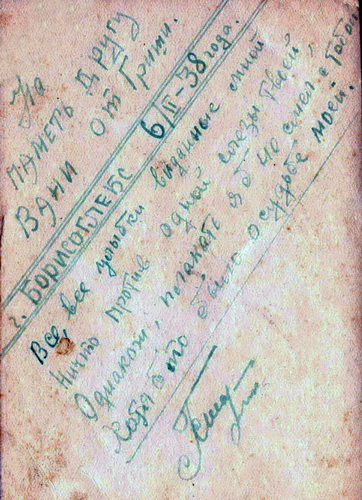 На
ПАМЕТЬ другу
ВАНИ от Гриши.
г. БОРИСОГЛЕБС 6/II-38 года.
Все, все улыбки виданные мной
Ничто против одной слезы твоей,
Однакож, поплакать я б не смел с тобой
Хотя б то было о судьбе моей.